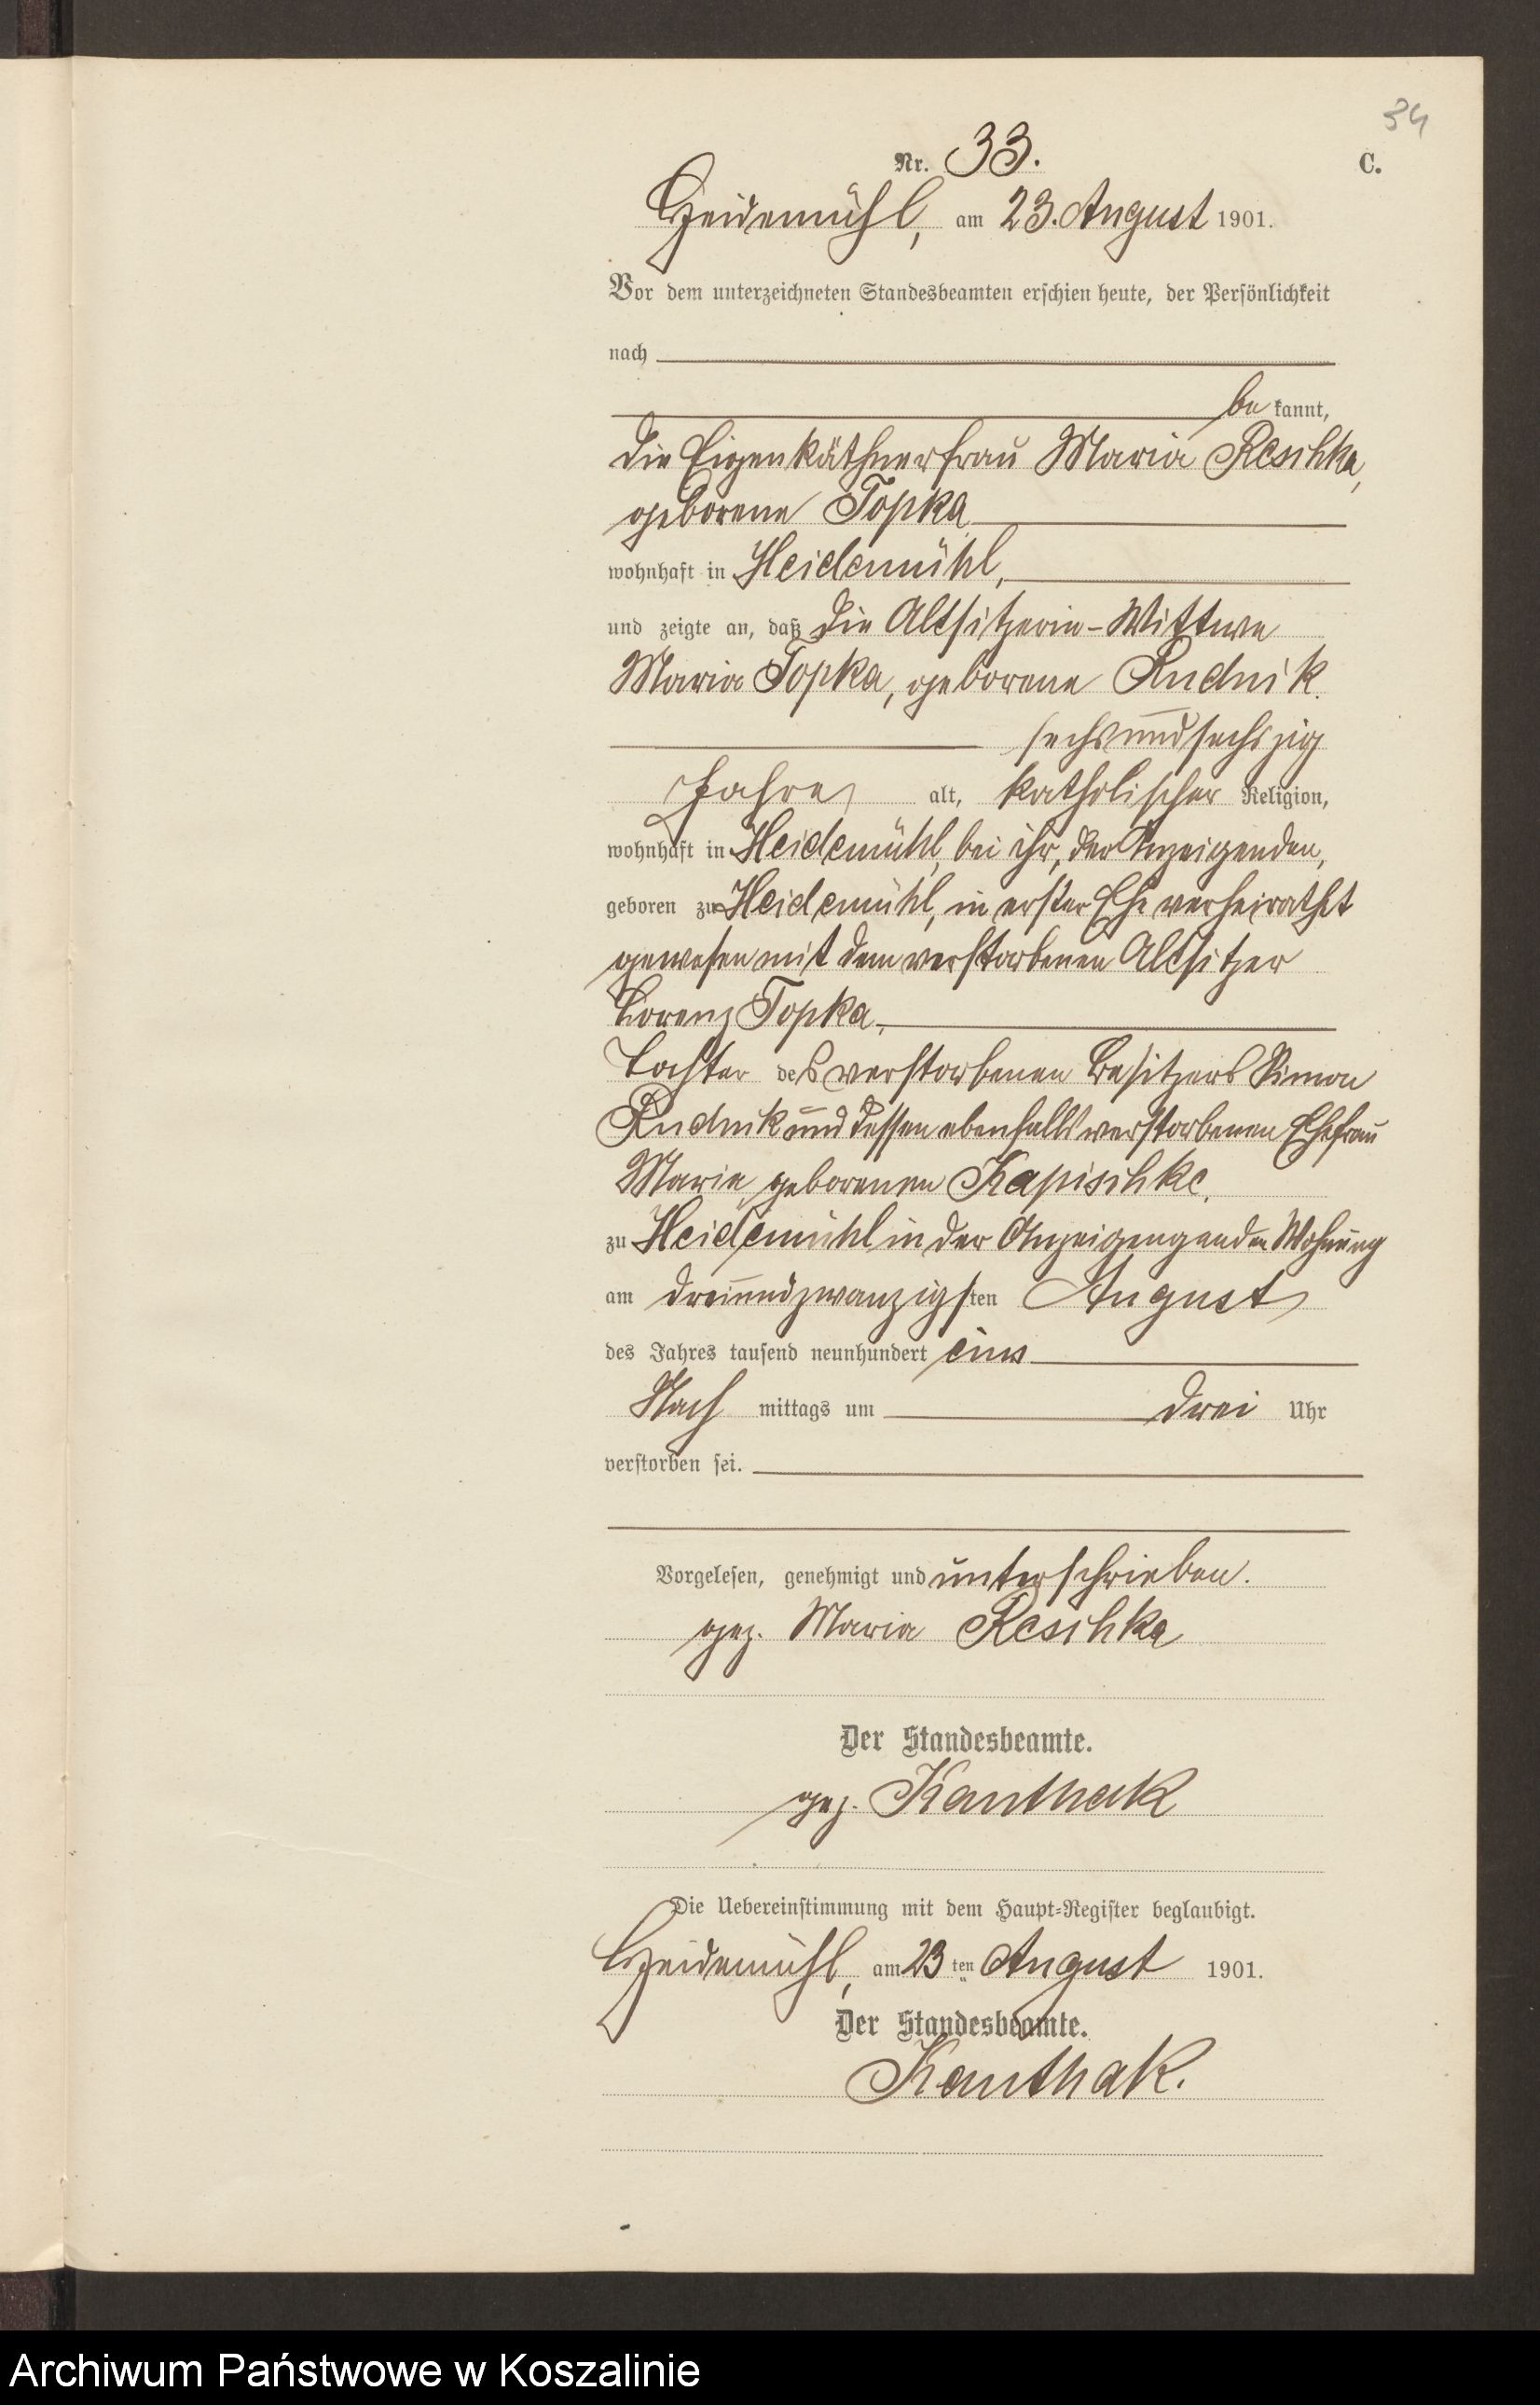 34
Nr. 33.
C.
Heidemühl, am 23. August 1901.
Vor dem unterzeichneten Standesbeamten erschien heute, der Persönlichkeit
nach
be kannt,
die Eigenkäthnerfrau Maria Reschka,
geborene Topka
wohnhaft in Heidemühl,
und zeigte an, daß die Altsitzerin-Wittwe
Maria Topka, geborene Rudnik
sechsundsechszig
Jahre alt, katholischer Religion,
wohnhaft in Heidemühl, bei ihr, der Anzeigenden,
geboren zu Heidemühl, in erster Ehe verheirathet
gewesen mit dem verstorbenen Altsitzer
Lorenz Topka,
Tochter des verstorbenen Besitzers Simon
Rudnik und dessen ebenfalls verstorbenen Ehefrau
Marie, geborenen Kapischke.
zu Heidemühl in der Anzeigengenden Wohnung
am dreiundzwanzigsten August
des Jahres tausend neunhundert eins
Nach mittags um drei Uhr
verstorben sei.
Vorgelesen, genehmigt und unterschrieben.
gez. Maria Reschka
Der Standesbeamte.
gez. Kanthak
Die Uebereinstimmung mit dem Haupt-Register beglaubigt.
Heidemühl, am 23ten August 1901.
Der Standesbeamte.
Kanthak.
Archiwum Państwowe w Koszalinie